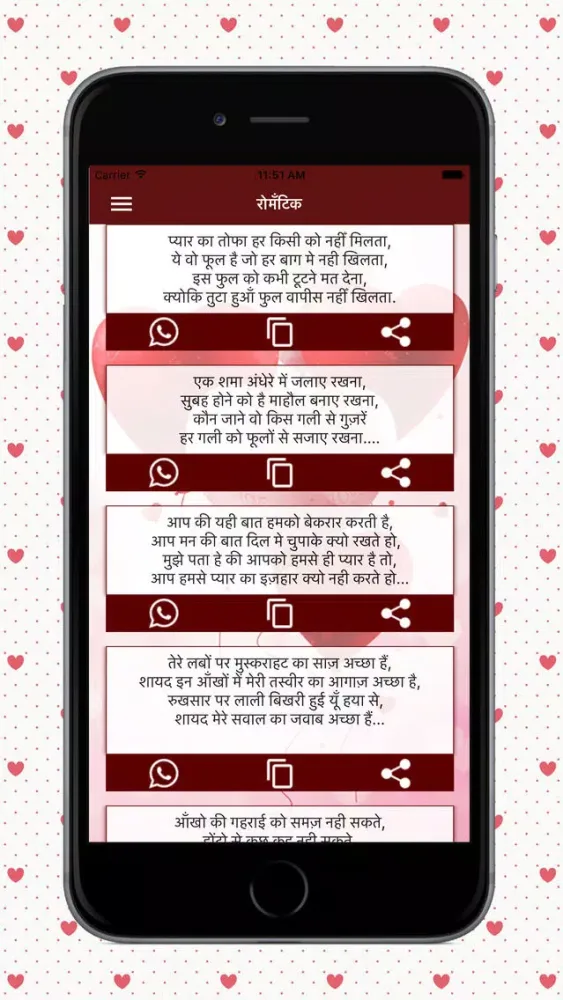 Carrier 11:51 AM
रोमँटिक
प्यार का तोफा हर किसी को नहीँ मिलता,
ये वो फूल है जो हर बाग मे नही खिलता,
इस फुल को कभी टूटने मत देना,
क्योकि तुटा हुआँ फुल वापीस नहीँ खिलता.
एक शमा अंधेरे में जलाए रखना,
सुबह होने को है माहौल बनाए रखना,
कौन जाने वो किस गली से गुज़रें
हर गली को फूलों से सजाए रखना....
आप की यही बात हमको बेकरार करती है,
आप मन की बात दिल मे चुपाके क्यो रखते हो,
मुझे पता हे की आपको हमसे ही प्यार है तो,
आप हमसे प्यार का इज़हार क्यो नही करते हो...
तेरे लबों पर मुस्कराहट का साज़ अच्छा हैं,
शायद इन आँखों में मेरी तस्वीर का आगाज़ अच्छा है,
रुखसार पर लाली बिखरी हुई यूँ हया से,
शायद मेरे सवाल का जवाब अच्छा हैं...
आँखो की गहराई को समज़ नही सकते,
होंटो से कुछ कह नही सकते